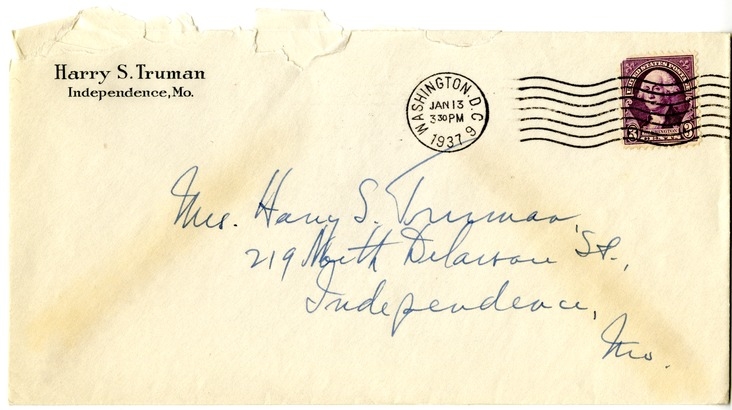 Harry S. Truman
Independence, Mo.
WASHINGTON, D.C. 9
JAN 13
3 30 PM
1937
UNITED STATES POSTAGE
3 3
WASHINGTON
Mrs. Harry S. Truman,
219 North Delaware St.,
Independence,
Mo.